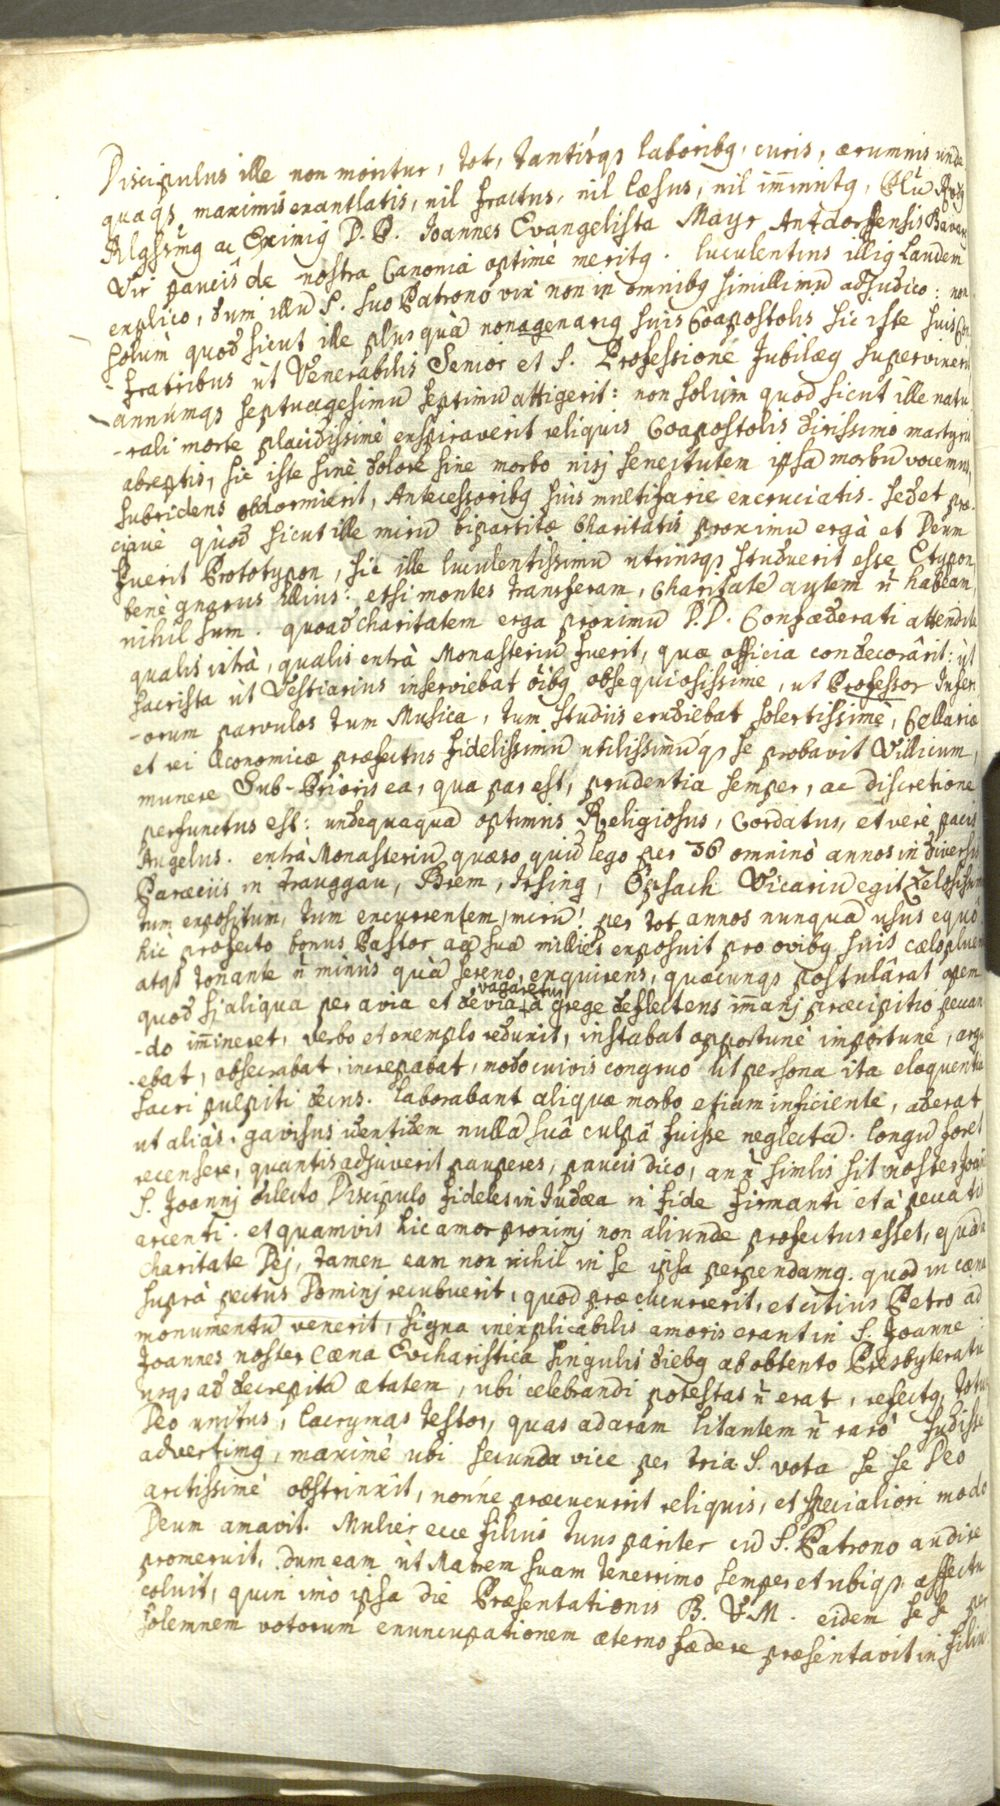 Discipulus ille non moritur, tot, tantisq3 laborib9, curis, ærumnis unde
quaq3 maximis exantlatis, nil fractus, nil læsus, nil im̄inut9,
ac Eximi9 D. P. Joannes Evangelista Mayr Antdorffensis Bavarg
Vir paucis de nostra Canonia optimè merit9. luculentius illi9 Laudem
explico, dum illū S. suo Patronō vix non in omnib9 simillimū adjudico: non
solùm quod sicut ille plus quā nonagenari9 suis Coapostolis sic iste suis Con
fratribus ut Venerabilis Senior et S. Professionē Jubilæ9 supervixerit
annumq3 septuagesimū septimū attigerit: non solùm quod sicut ille natu
-rali morte placidissimè exspiraverit reliquis Coapostolis dirissimo martyrio
abreptis, sic iste sinè dolore sine morbo nisj senectutem ipsā morbū vocemus,
subridens obdormierit, Antecessorib9 suis multifarie excruciatis. sed et præ-
cipuè quod sicut ille mirū bipartitæ Charitatis proximū ergà et Deum
fuerit Prototypon, sic ille luculentissimū utriusq3 studuerit esse Etypon,
benè gnarus illius: etsi montes transferam, Charitatē autem n̄ habeam,
nihil sum. quoad charitatem erga proximū P.P. Confæderati attendite
qualis intrà, qualis extrà Monasteriū fuerit, quæ officia condecorârit: ut
sacrista ut Vestiarius inserviebat oīb9 obsequiosissime, ut Professor Infer
-orum parvulos tum Musica, tum studiis erudiebat solertissimè, Cellario
et rei Œconomicæ præfectus fidelissimū utilissimūq3 se probavit Villicum,
munere Sub-Prioris ea, qua par est, prudentia semper, ac discretione
perfunctus est: undequaquā optimus Religiosus, Cordatus, et verè pacis
Angelus. extrà Monasteriū quæso quid lego per 36 omninò annos in diversis
Paræciis in Trauggau, Brem, Irsing, Opsach Vicariū egit Zelosissimū
tum expositum, tum excurrentem, mirū! per tot annos nunquā usus equo.
hic profecto bonus Pastor aā suā millies exposuit pro ovib9 suis cælo pluente
atq3 tonante n̄ minùs quā sereno, exquirens, quæcunq3 postulârat opem
vagaretur
quod sj aliqua per avia et devia à grege deflectens im̄anj præcipitio peccan
-do im̄ineret, verbo et exemplo reduxit, instabat opportunè importunè, argu
-ebat, obsecrabat, increpabat, modo cuivis congruo ut persona ita eloquentia
sacri pulpiti decus. Laborabant aliquæ morbo etiam inficiente, aderat
ut aliàs. gavisus identidem nullā suâ culpâ fuisse neglectā. longū foret
recensere, quantis adjuverit pauperes, paucis dico, an n̄ similis sit noster Joañ
S. Joannj dilecto Discipulo fideles in Judæa in fide firmanti et à peccatis
arcenti. et quamvis hic amor proximj non aliunde profectus esset, quā à
charitate Dej, tamen eam non nihil in se ipsa perpendam9. quod in cæna
suprà pectus Dominj recubuerit, quod præcucurrerit, et citius Petro ad
monumentū venerit, signa inexplicabilis amoris erant in S. Joanne:
Joannes noster Cæna Eucharistica singulis dieb9 ab obtento Presbyteratu
usq3 ad decrepitā ætatem, ubi celebrandi potestas n̄ erat, refect9, totus
Deo unitus, lacrymas testor, quas ad aram litantem n̄ rarò fudisse
advertim9, maximè ubi secunda vice per tria S. vota se se Deo
arctissimè obstrinxit, nonne præcucurrit reliquis, et specialiori modo
Deum amavit. Mulier ecce filius tuus pariter cū S. Patrono audire
promeruit, dum eam ut Matrem suam tenerrimo semper et ubiq3 affectu
coluit, quin imò ipsa die Præsentationis B. V. M. eidem se se per
solemnem votorum enuncupationem æterno fædere præsentavit in filiū